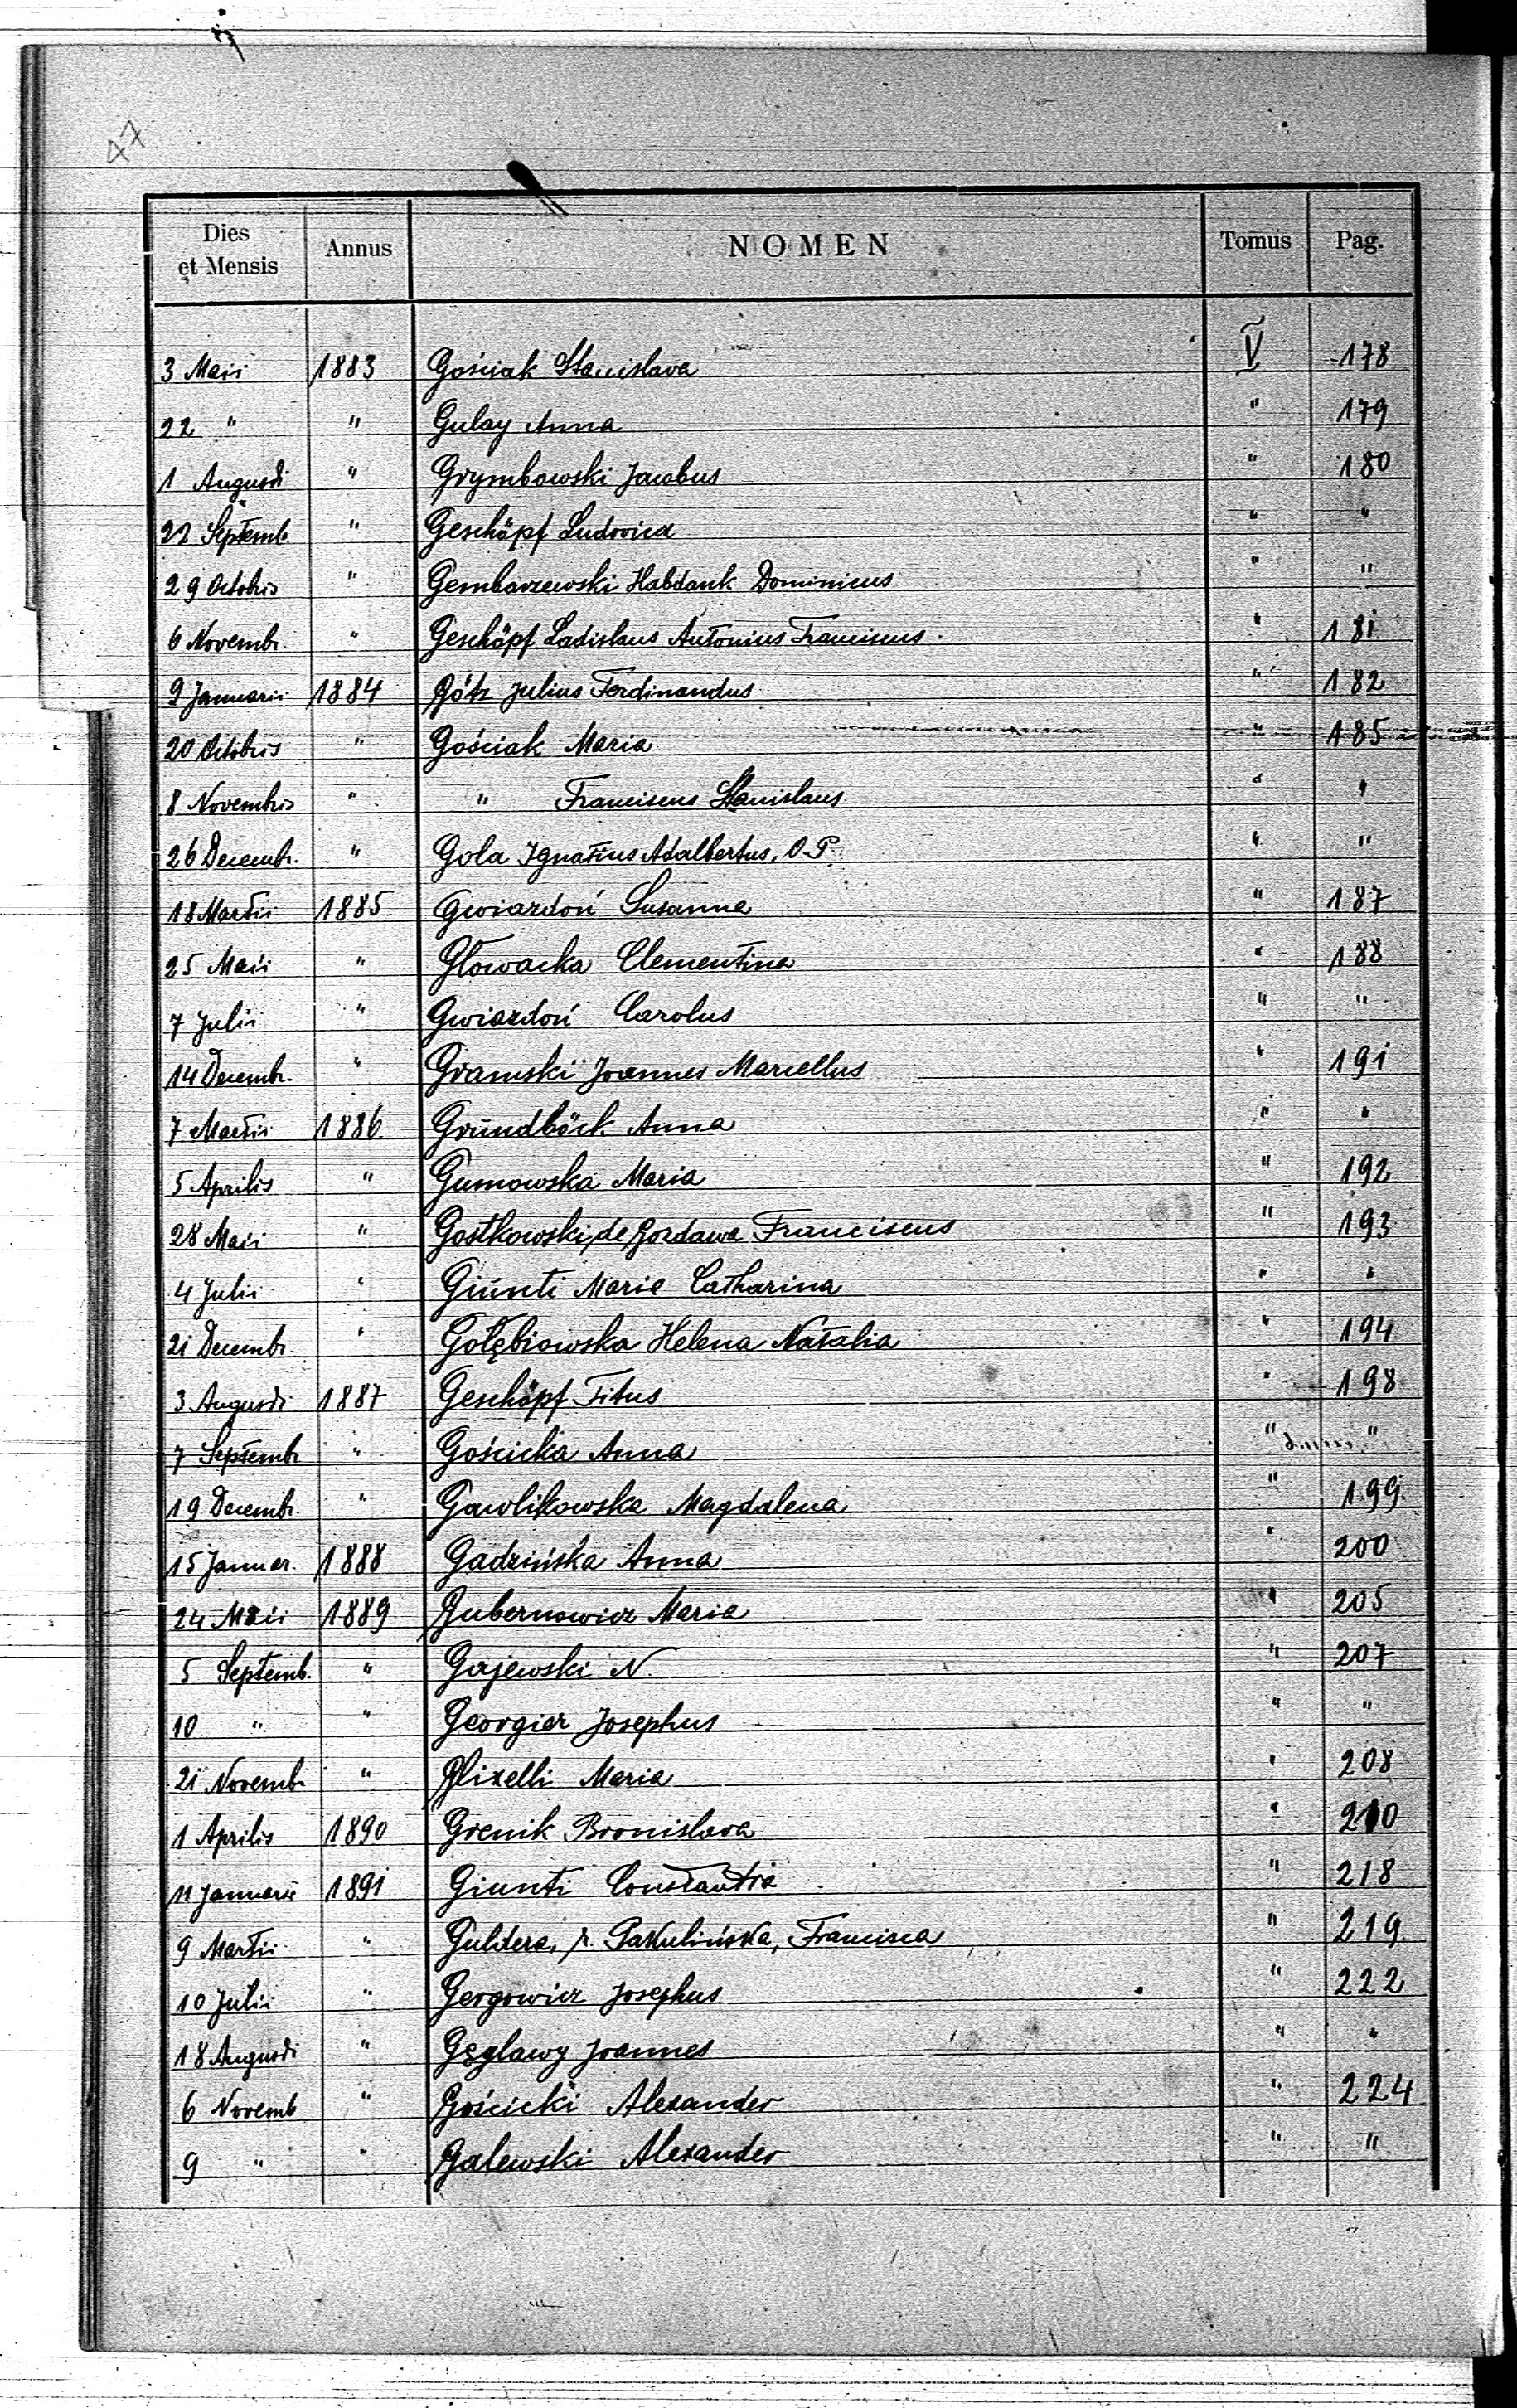 47
Dies et Mensis Annus NOMEN Tomus Pag.
3 Maii 1883 Gościak Stanislava V 178
22 " " Gulay Anna " 179
1 Augusti " Grymbowski Jacobus " 180
22 Septemb. " Geschöpf Ludovica " "
29 Octobris " Gembarzewski Habdank Dominicus " "
6 Novembr. " Geschöpf Ladislaus Antonius Franciscus. " 181
9 Januarii 1884 Götz Julius Ferdinandus " 182
20 Octobris " Gościak Maria " 185
8 Novembris " " Franciscus Stanislaus " "
26 Decembr. " Gola Ignatius Adalbertus, O.P. " "
18 Martii 1885 Gwiazdoń Susanna " 187
25 Maii " Głowacka Clementina " 188
7 Julii " Gwiazdoń Carolus " "
14 Decembr. " Gramski Joannes Marcellus " 191
7 Martii 1886 Grundböck Anna " "
5 Aprilis " Gumowska Maria " 192
28 Maii " Gostkowski de Gozdawa Franciscus " 193
4 Julii " Giunti Maria Catharina " "
21 Decembr. " Gołębiowska Helena Natalia " 194
3 Augusti 1887 Geschöpf Titus " 198
7 Septembr " Gościcka Anna " "
19 Decembr. " Gawlikowska Magdalena " 199
15 Januar. 1888 Gadzińska Anna " 200
24 Maii 1889 Gubernowicz Maria " 205
5 Septemb. " Gajewski N. " 207
10 " " Georgier Josephus " "
21 Novembr " Glixelli Maria " 208
1 Aprilis 1890 Grenik Bronislava " 210
11 Januarii 1891 Giunti Constantia " 218
9 Martii " Francisca " 219
10 Julii " Gergowicz Josephus " 222
18 Augusti " Gęglawy Joannes " "
6 Novemb " Gościcki Alexander " 224
9 " " Galewski Alexander " "